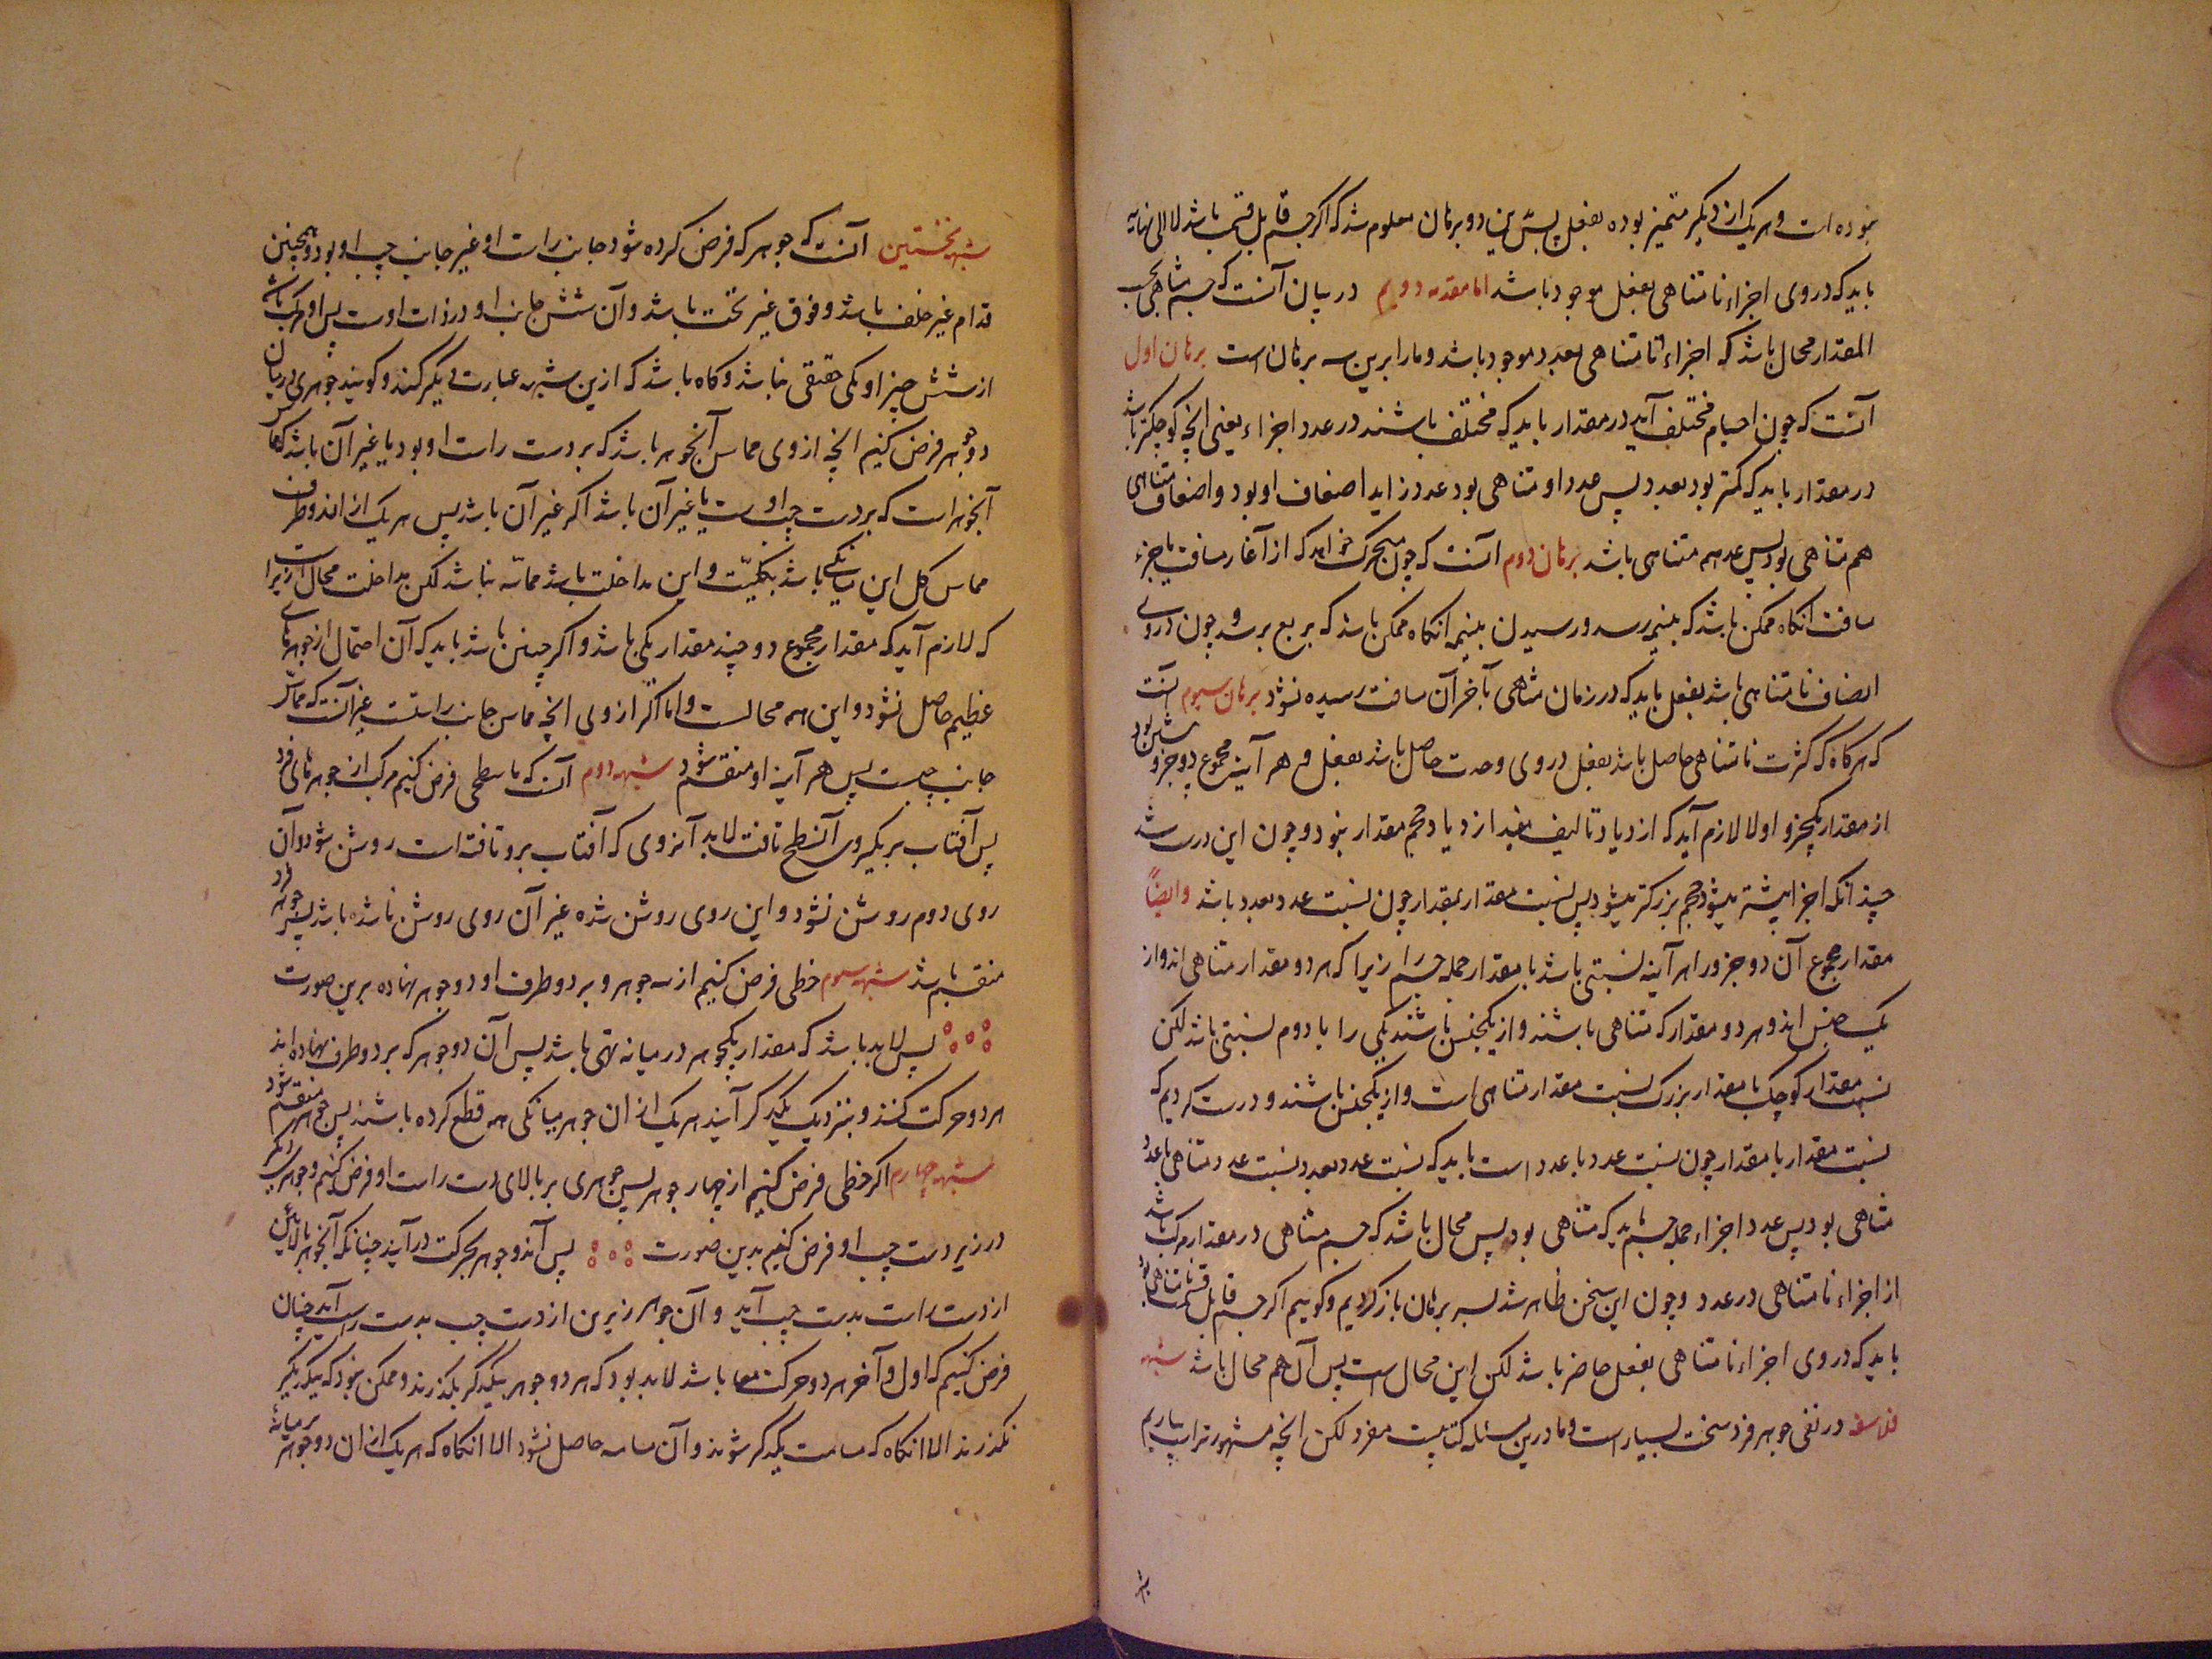 بوده است و هر یک از دیگر متمیز بوده بفعل پس بدین دو برهان معلوم شد که اگر جسم قابل قسمت باشد لا الی نهایه
باید که در وی اجزاء نامتناهی بفعل موجود باشد اما مقدمه دویم در بیان آنست که جسم متناهی بحسب
المقدار محال باشد که اجزاء نامتناهی بعدد موجود باشد و ما را برین سه برهان است برهان اول
آنست که چون اجسام مختلف آید در مقدار باید که مختلف باشند در عدد اجزاء یعنی انچه کوچکتر باشد
در مقدار باید که کمتر بود بعدد پس عدد او متناهی بود عدد زاید اضعاف او بود و اضعاف متناهی
هم متناهی بود پس همه متناهی باشد برهان دوم آنست که چون متحرک خواهد که از آغار مسافت باخر
مسافت انکاه ممکن باشد که بنیمه رسد و رسیدن بنیمه انکاه ممکن باشد که بربع برسد و چون در وی
انصاف نامتناهی باشد بفعل باید که در زمان متناهی بآخر آن مسافت رسیده نشود برهان سیوم آنست
که هرکاه که کثرت نامتناهی حاصل باشد بفعل در وی وحدت حاصل باشد بفعل و هر آینه مجموع دو جزو بیش بود
از مقدار یکجزو و اولا لازم آید که ازدیاد تالیف مفید ازدیاد حجم مقدار نبود و چون این درست شد
چندانکه اجزا بیشتر میشود حجم بزرکتر میشود پس نسبت مقدار بمقدار چون نسبت عدد بعدد باشد وایضاً
مقدار مجموع آن دو جزو را هر آینه نسبتی باشد با مقدار جمله جسم زیرا که هر دو مقدار متناهی اند و از
یک جنس اند و هر دو مقدار که متناهی باشند و از یکجنس باشند یکی را با دوم نسبتی باشد لکن
نسبت مقدار کوچک با مقدار بزرک نسبت مقدار متناهی است و از یکجنس باشند و درست کردیم که
نسبت مقدار با مقدار چون نسبت عدد با عدد است باید که نسبت عدد بعدد نسبت عدد متناهی با عدد
متناهی بود پس عدد اجزاء جمله جسم باید که متناهی بود پس محال باشد که جسم متناهی در مقدار مرکب باشد
از اجزاء نامتناهی در عدد و چون این سخن ظاهر شد بسر برهان باز کردیم و کوییم اکر جسم قابل قسمت نامتناهی بود
باید که در وی اجزاء نامتناهی بفعل حاضر باشد لکن این محال است پس آن هم محال باشد شبهه
فلاسفه در نفی جوهر فرد سخت بسیار است و ما درین مسئله کتابیست مفرد لکن انچه مشهورتر است بیاریم
شبهه نخستین آنست که جوهر که فرض کرده شود جانب راست او غیر جانب چپ او بود و همچنین
قدام غیر خلف باشد و فوق غیر تحت باشد و آن شش جانب او در ذات اوست پس او مرکب باشد
از شش چیز او یکی حقیقی نباشد و کاه باشد که ازین شبهه عبارت دیکر کنند و کویند جوهری در میان
دو جوهر فرض کنیم انچه از وی مماس آنجوهر باشد که بر دست راست او بود یا غیر آن باشد که مماس
آنجوهر است که بر دست چپ اوست یا غیر آن باشد اکر غیر آن باشد پس هر یک از اندو طرف
مماس کل این میانکی باشد بکلیّت و این مداخلت باشد مماسّه نباشد لکن مداخلت محال است زیرا
که لازم آید که مقدار مجموع دو چند مقدار یکی باشد و اکر چنین باشد باید که آن احتمال از جوهرهای
عظیم حاصل نشود و این همه محالست و اما اکر از وی انچه مماس جانب راستست غیر آنست که مماس
جانب چپست پس هر آینه او منقسم شود شبهه دوم آن که ما سطحی فرض کنیم مرکب از جوهرهای فرد
پس آفتاب بر یکروی آنسطح تافت لابد آنروی که آفتاب برو تافته است روشن شود و آن
روی دوم روشن نشود و این روی روشن شده غیر آن روی روشن ناشده باشد پس جوهر فرد
منقسم باشد شبهه سیوم خطی فرض کنیم از سه جوهر و بر دو طرف او دو جوهر نهاده برین صورت
پس لابد باشد که مقدار یکجوهر در میانه تهی باشد پس آن دو جوهر که بر دو طرف نهاده اند
هر دو حرکت کنند و بنزدیک یکدیکر آیند هر یک از ان جوهر میانکی همه قطع کرده باشند پس جوهر منقسم شود
شبهه چهارم اکر خطی فرض کنیم از چهار جوهر پس جوهری بر بالای دست راست او فرض کنیم و جوهری دیکر
در زیر دست چپ او فرض کنیم بدین صورت پس آندو جوهر بحرکت درآیند چنانکه آنجوهر بالائین
از دست راست بدست چپ آید و آن جوهر زیرین از دست چپ بدست راست آید چنان
فرض کنیم که اول و آخر هر دو حرکت معا باشد لابد بود که هر دو جوهر بیکدیکر بکذرند و ممکن نبود که بیکدیکر
نکذرند الا انکاه که مسامت یکدیکر شوند و آن مسامته حاصل نشود الا انکاه که هر یک از ان دو جوهر بر میانه